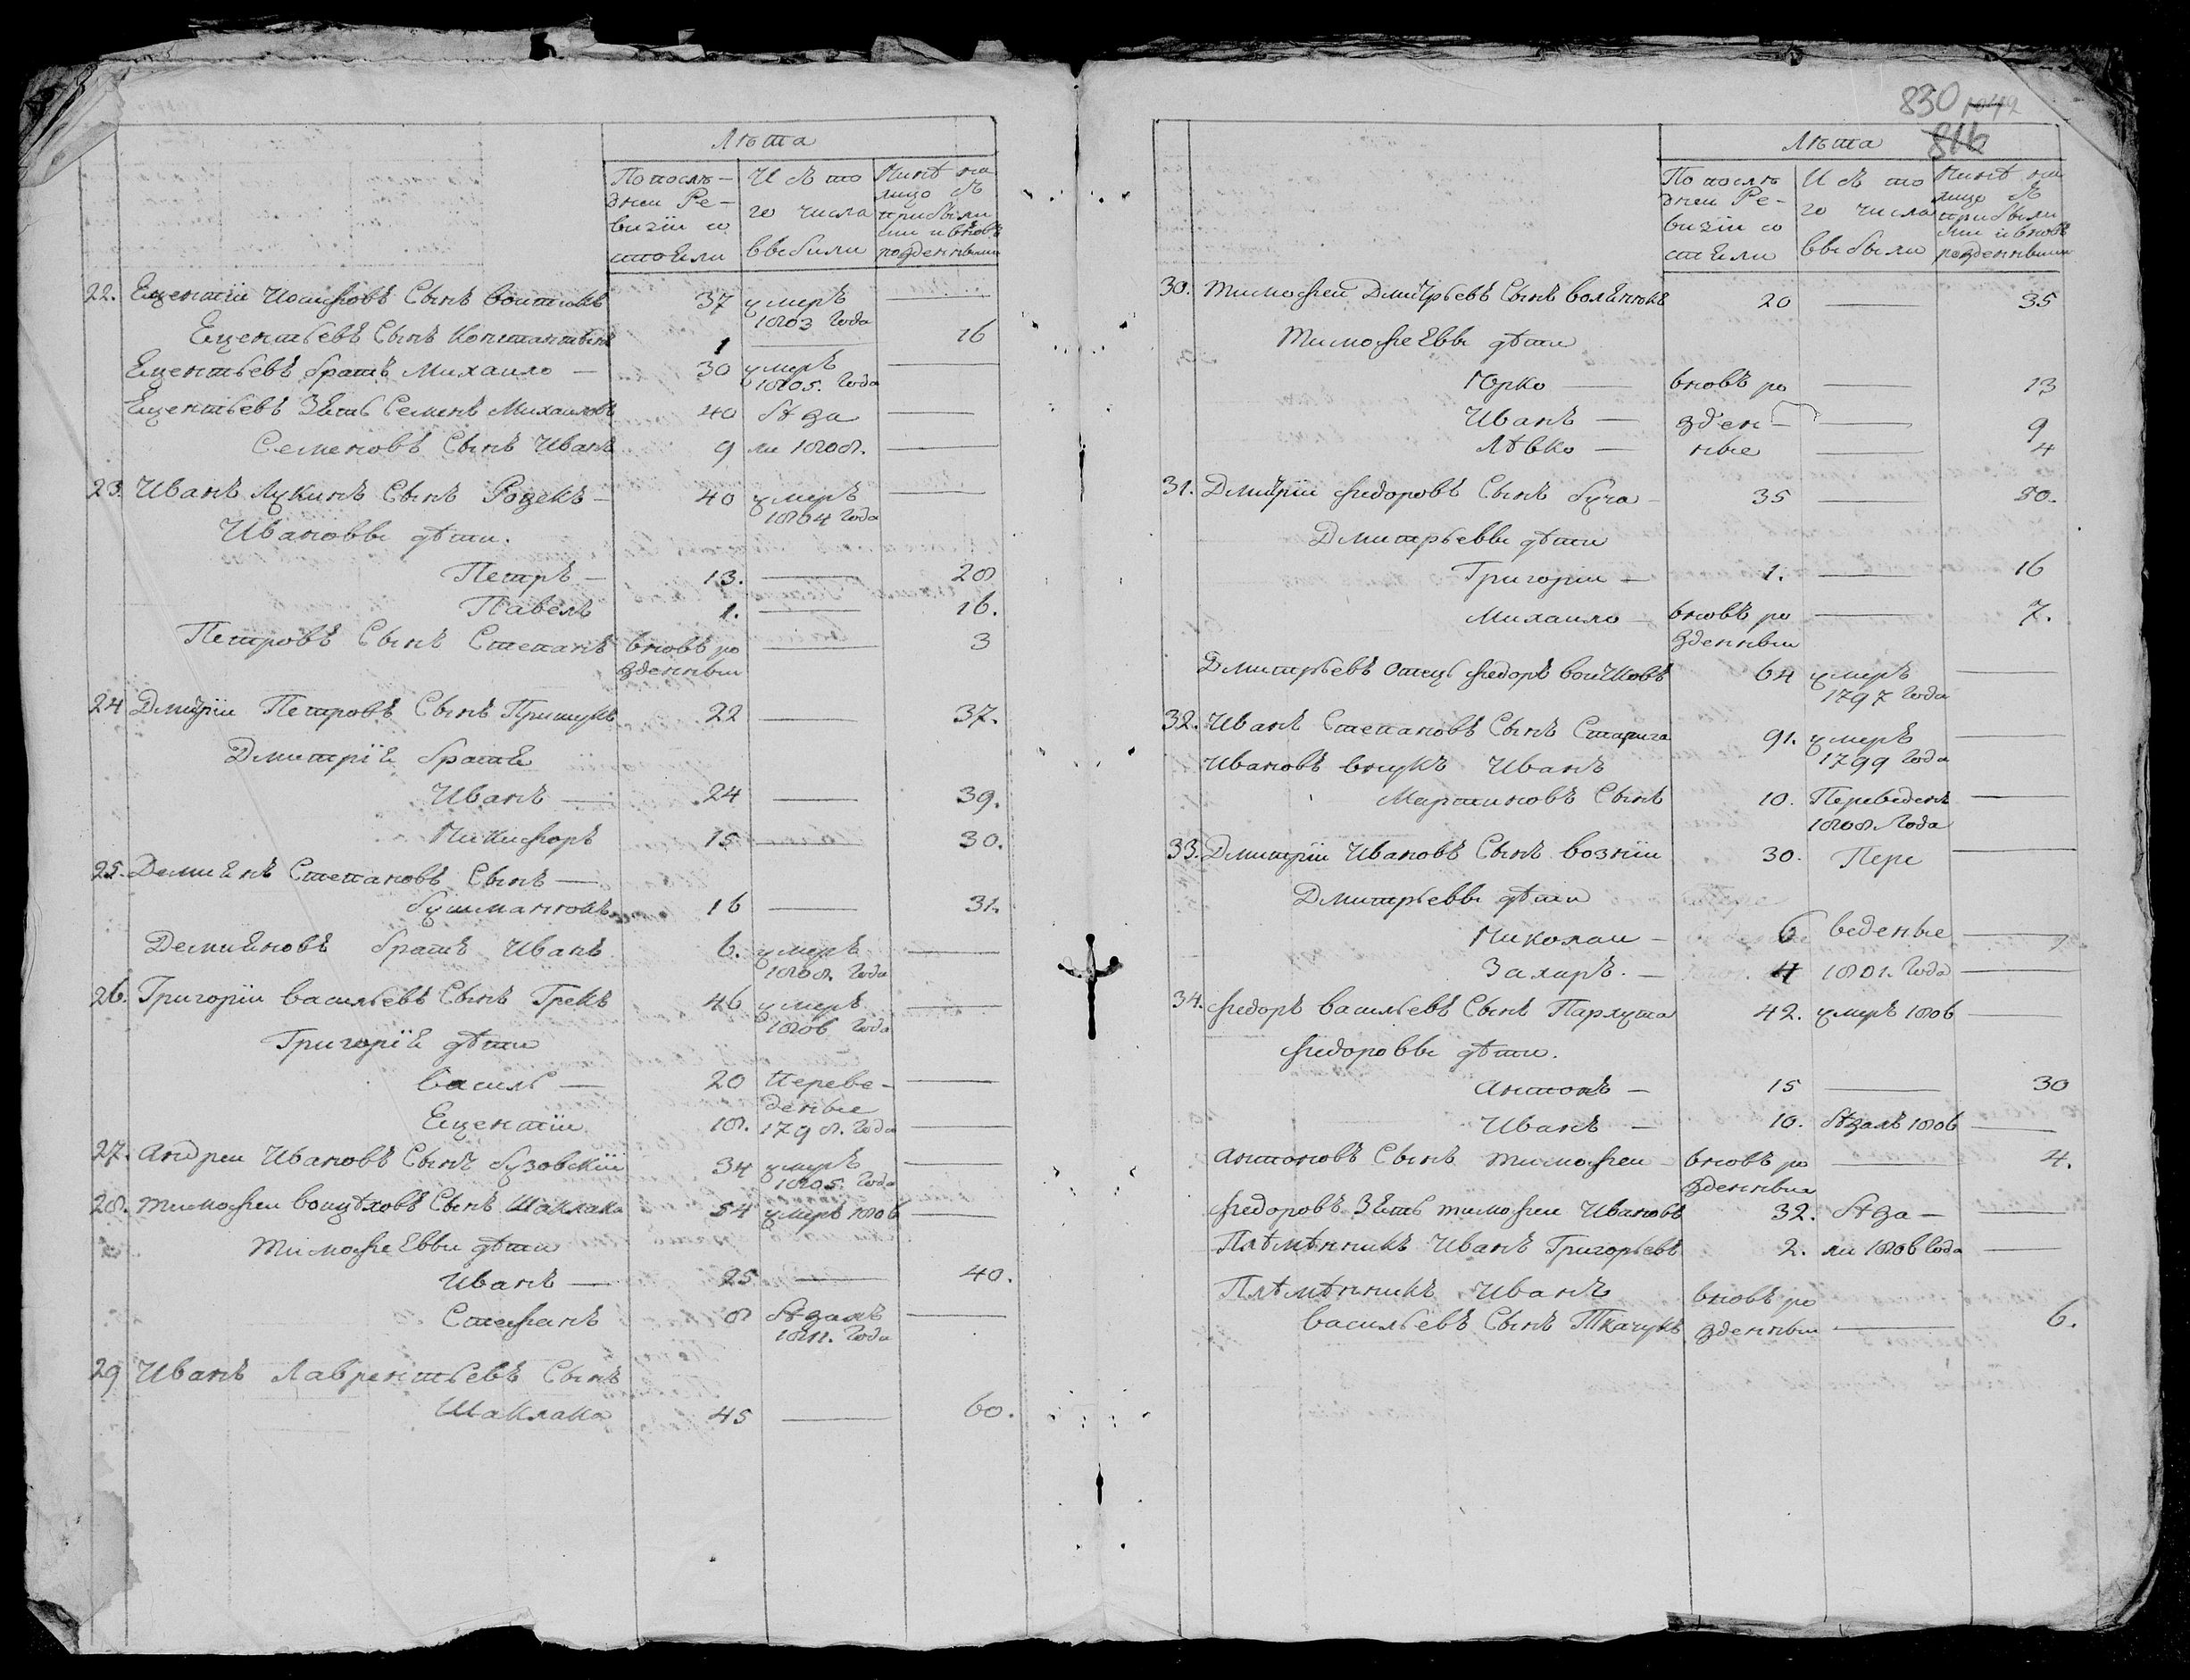 Лѣта
По послѣ- И съ то Нинѣ на
днеи Ре- го числа лицо съ
визіи со прибыли
стояли выбыли ми и вновь
розденными
22. Ецентіи Иосифовъ Сынъ воитикъ 37 умеръ
1803 Года
Ецентьевъ Сынъ Константинъ 1 16
Ецентьевъ братъ Михаило — 30 умеръ
1805. Года
Ецентьевъ Зять Семенъ Михаиловъ 40 бѣжа
Семеновъ Сынъ Иванъ 9 ли 1808.
23. Иванъ Лукинъ Сынъ — 40 умеръ
1804 Года
Ивановы дѣти.
Петръ — 13. 28
Павелъ 1. 16.
Петровъ Сынъ Степанъ вновь ро 3
зденныи
24 Дмитріи Петровъ Сынъ Грищукъ 22 37.
Дмитрія братя
Иванъ — 24 39.
Никифоръ 15 30.
25. Демиянъ Степановъ Сынъ —
16 31.
Демияновъ братъ Иванъ 6. умеръ
1808. Года
26. Григоріи васильевъ Сынъ Грекъ 46 умеръ
1806 Года
Григорія дѣти
василь — 20 переве-
деные
Ецентіи 18. 1798. Года
27. Андреи Ивановъ Сынъ бузовскіи 34 умеръ
1805. Года
28. тимофеи воицѣховъ Сынъ Шаклака 54 умеръ 1806
тимофеявы дѣти
Иванъ — 25 40.
Стефанъ 8 бѣжалъ
1811. Года
29 Иванъ Лаврентьевъ Сынъ
Шаклака 45 60.
830 1049
816
Лѣта
По послѣ И съ то Нинѣ на
днеи Ре- го числа лицо съ
визіи со прибыли
стояли выбыли ми и вновь
розденными
30. тимофеи Дмитрьевъ Сынъ волянюкъ 20 35
тимофеявы дѣти
Юрко — вновь ро 13
Иванъ — зден- 9
Лѣвко — ные 4
31. Дмитріи федоровъ Сынъ буча 35 50.
Дмитрьевы дѣти
Григоріи — 1. 16
Михаило — вновь ро 7.
зденныи
Дмитрьевъ отецъ федоръ 64 умеръ
1797 Года
32. Иванъ Степановъ Сынъ 91. умеръ
1799 Года
Ивановъ внукъ Иванъ
Мартиновъ Сынъ 10. Переведенъ
1808. Года
33. Дмитріи Ивановъ Сынъ возніи 30. Пере
Дмитрьевы дѣти
Николаи — 6 веденые
Захаръ. — 4 1801. Года
34. федоръ васильевъ Сынъ Пархута 42. умеръ 1806
федоровы дѣти.
антонъ — 15 30
Иванъ — 10. бѣжалъ 1806
антоновъ Сынъ тимофеи вновь ро 4.
зденныи
федоровъ Зять тимофеи Ивановъ 32. бѣжа —
Плѣмѣнникъ Иванъ Григорьевъ 2. ли 1806 Года
Плѣмѣнникъ Иванъ вновь ро
васильевъ Сынъ Ткачукъ зденныи 6.